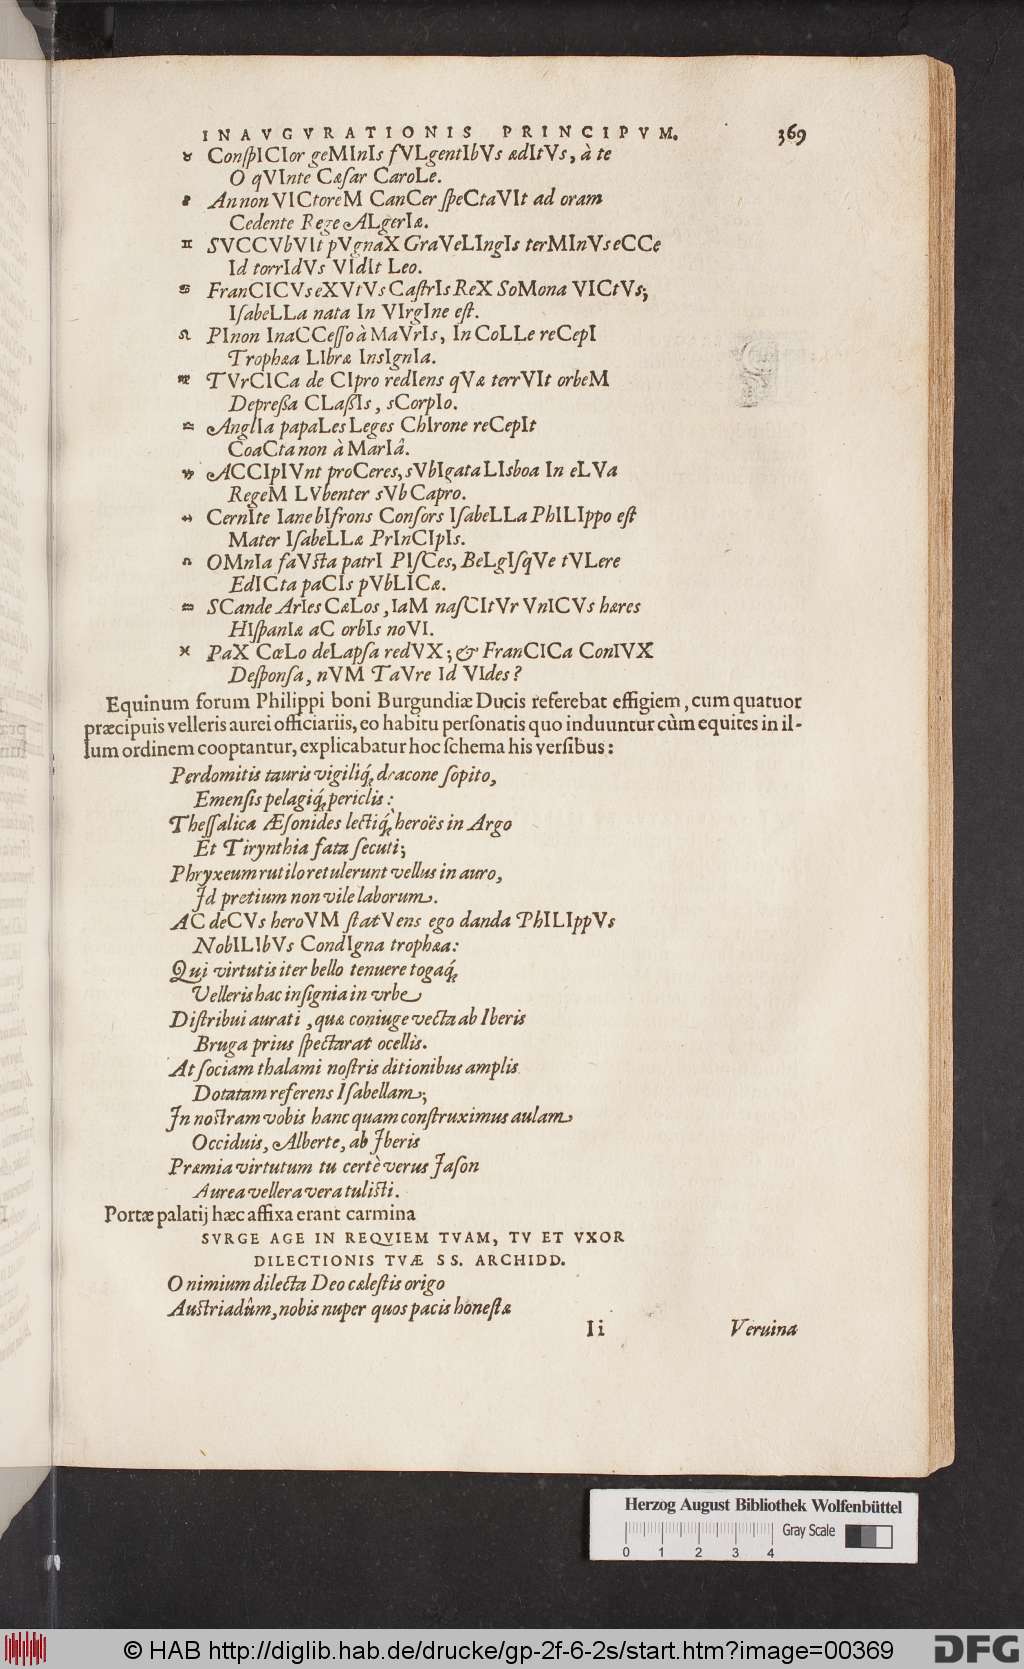 INAVGVRATIONIS PRINCIPVM. 369
♉ ConſpICIor geMInIs fVLgentIbVs ædItVs, à te
O qVInte Cæſar CaroLe.
Annon VICtoreM CanCer ſpeCtaVIt ad oram
Cedente Rege ALgerIæ.
♊ SVCCVbVIt pVgnaX GraVeLIngIs terMInVs eCCe
Id torrIdVs VIdIt Leo.
♋ FranCICVs eXVtVs CaſtrIs ReX SoMona VICtVs;
IſabeLLa nata In VIrgIne eſt.
♌ PInon InaCCeſſo à MaVrIs, In CoLLe reCepI
Trophæa LIbræ InsIgnIa.
♍ TVrCICa de CIpro redIens qVæ terrVIt orbeM
Depreßa CLaßIs, sCorpIo.
♎ AnglIa papaLes Leges ChIrone reCepIt
CoaCta non à MarIâ.
♑ ACCIpIVnt proCeres, sVbIgata LIsboa In eLVa
RegeM LVbenter sVb Capro.
CernIte Iane bIfrons Conſors IſabeLLa PhILIppo eſt
Mater IſabeLLæ PrInCIpIs.
OMnIa faVſta patrI PIſCes, BeLgIſqVe tVLere
EdICta paCIs pVbLICæ.
♒ SCande ArIes CæLos, IaM naſCItVr VnICVs hæres
HIſpanIæ aC orbIs noVI.
PaX CœLo deLapſa redVX; & FranCICa ConIVX
Deſponſa, nVM TaVre Id VIdes?
Equinum forum Philippi boni Burgundiæ Ducis referebat effigiem, cum quatuor
præcipuis velleris aurei officiariis, eo habitu perſonatis quo induuntur cùm equites in il-
lum ordinem cooptantur, explicabatur hoc ſchema his verſibus:
Perdomitis tauris vigiliq́; dracone ſopito,
Emenſis pelagiq́; periclis:
Theſſalica Æſonides lectiq́; heroës in Argo
Et Tirynthia fata ſecuti;
Phryxeum rutilo retulerunt vellus in auro,
Id pretium non vile laborum.
AC deCVs heroVM ſtatVens ego danda PhILIppVs
NobILIbVs CondIgna trophæa:
Qui virtutis iter bello tenuere togaq́;
Velleris hac inſignia in vrbe
Diſtribui aurati, quæ coniuge vecta ab Iberis
Bruga prius ſpectarat ocellis.
At ſociam thalami noſtris ditionibus amplis
Dotatam referens Iſabellam;
In noſtram vobis hanc quam conſtruximus aulam
Occiduis, Alberte, ab Iberis
Præmia virtutum tu certè verus Jaſon
Aurea vellera vera tuliſti.
Portæ palatij hæc affixa erant carmina
SVRGE AGE IN REQVIEM TVAM, TV ET VXOR
DILECTIONIS TVÆ SS. ARCHIDD.
O nimium dilecta Deo cæleſtis origo
Auſtriadûm, nobis nuper quos pacis honeſtæ
Ii Veruina
Herzog August Bibliothek Wolfenbüttel
Gray Scale
0 1 2 3 4
© HAB http://diglib.hab.de/drucke/gp-2f-6-2s/start.htm?image=00369 DFG